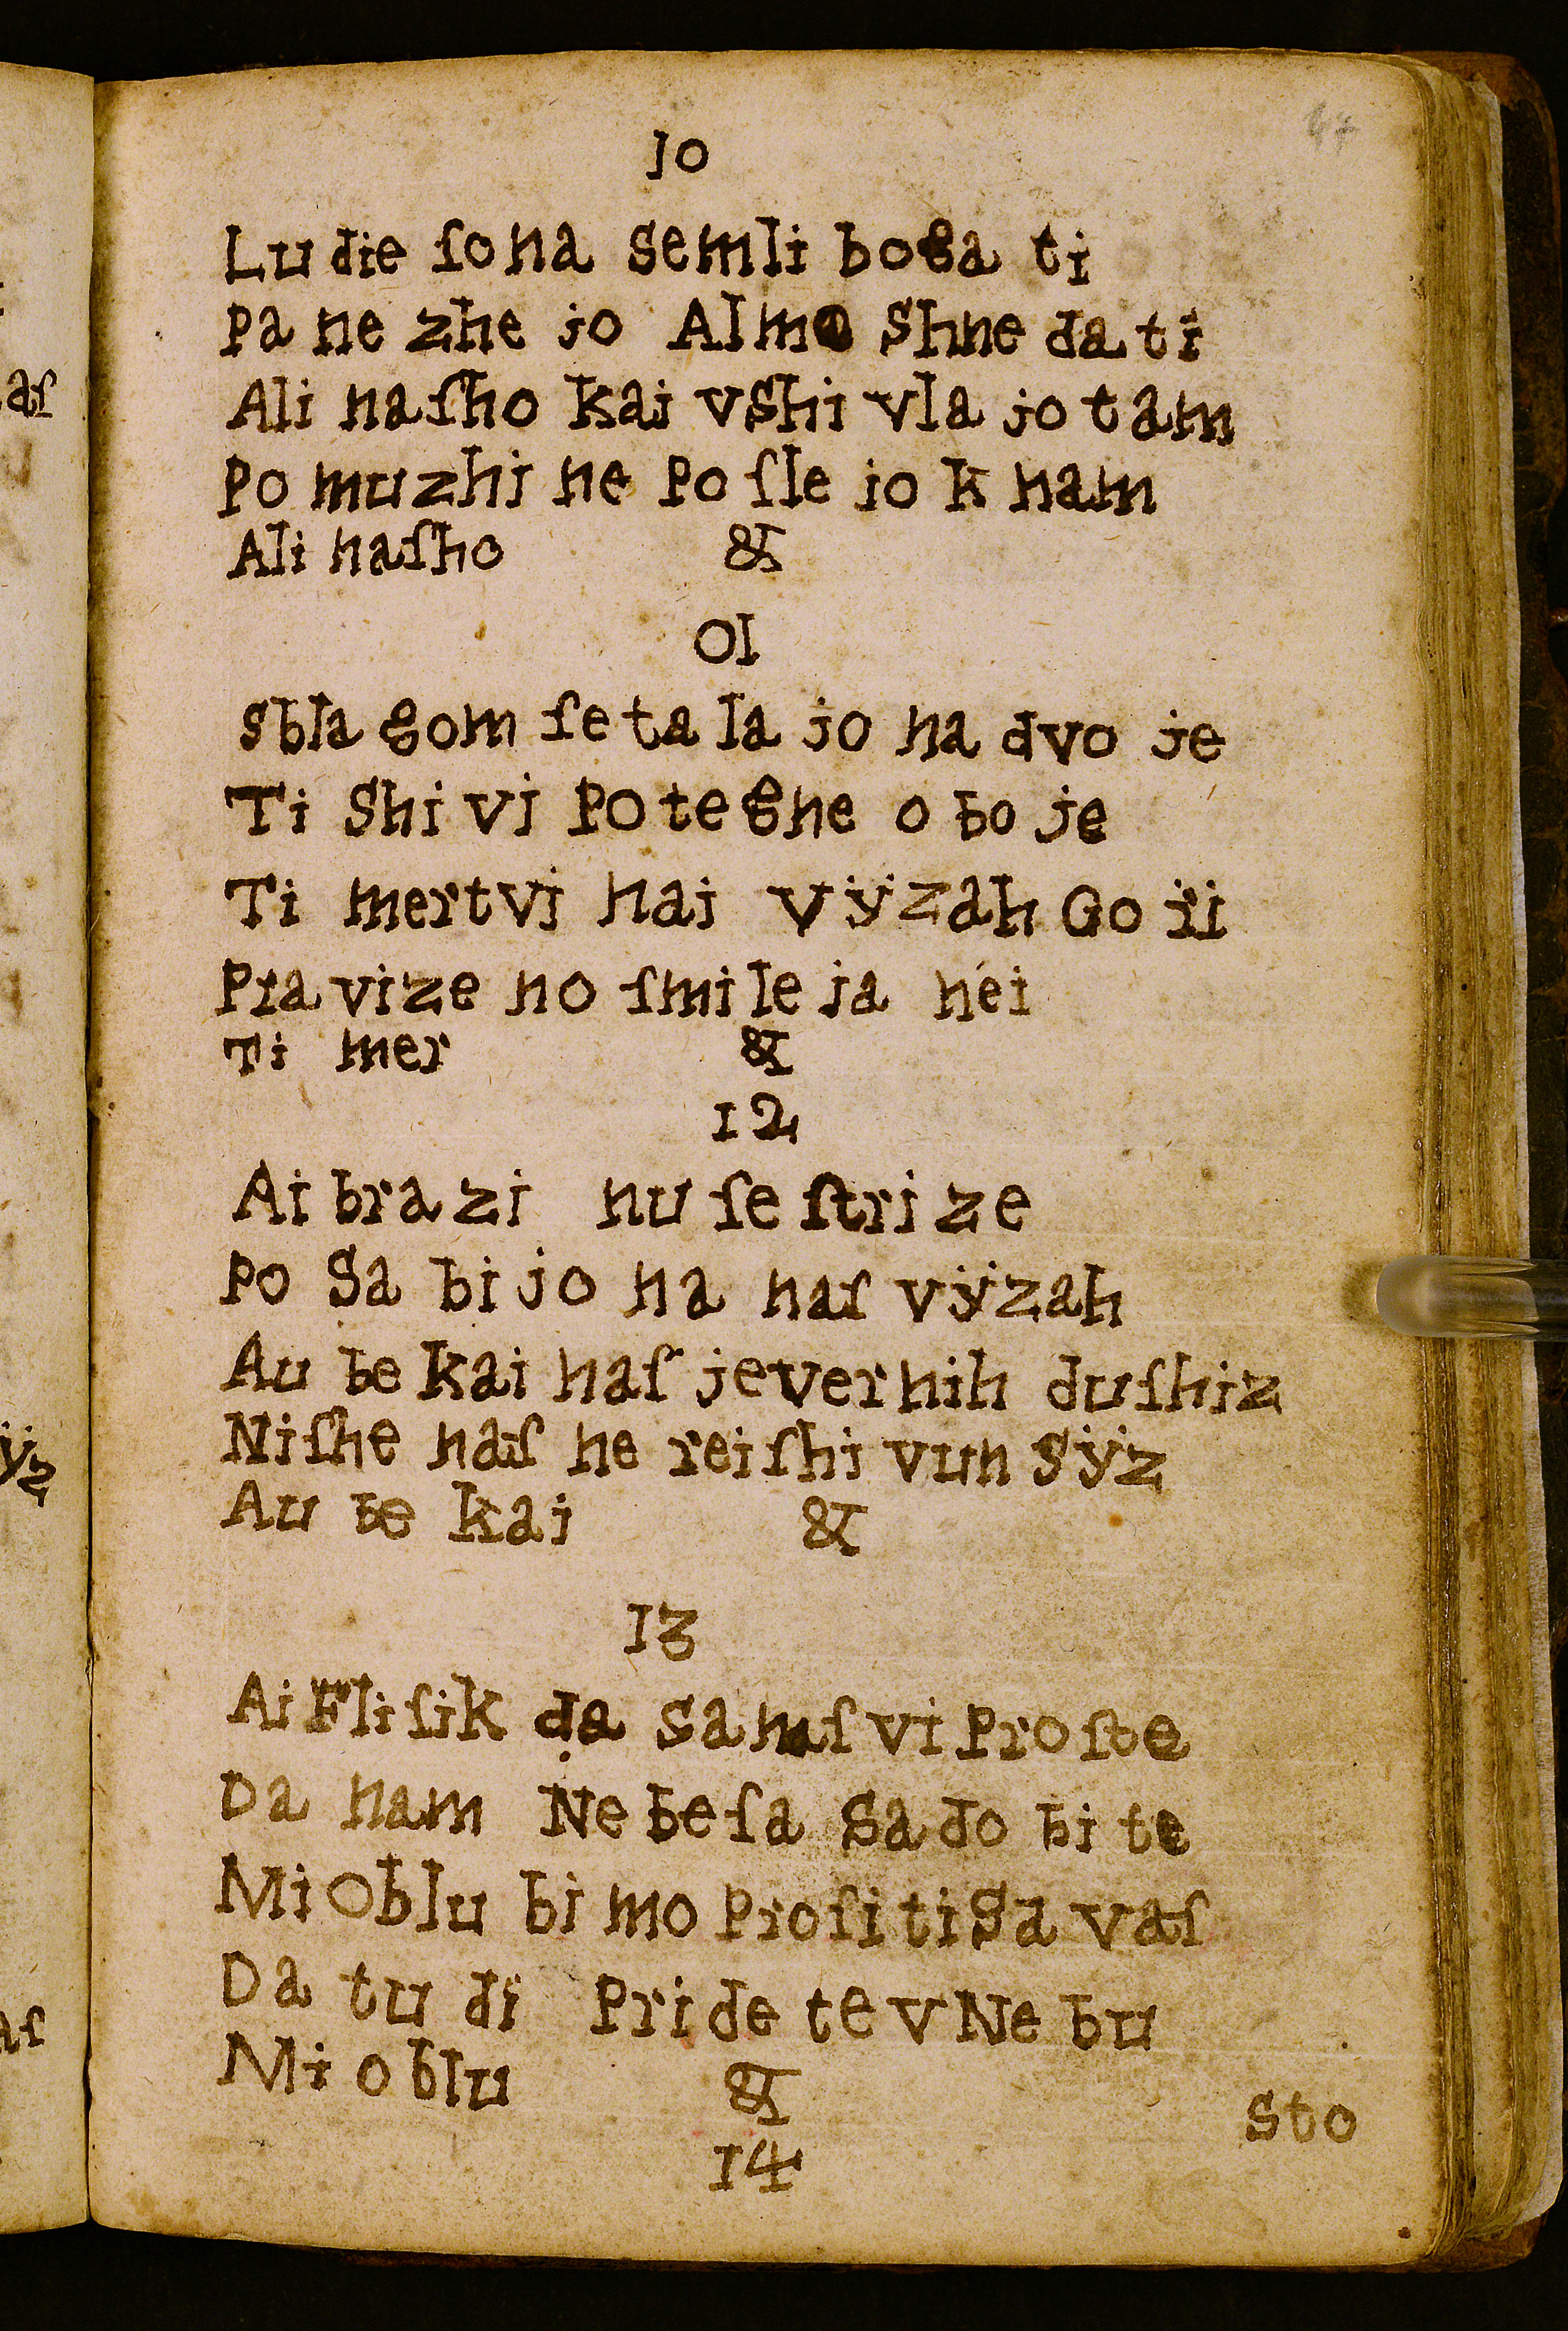 47
10
Ludie ſo na semli bogati
Pa ne zhejo Almoshne dati
Ali naſho kai vshivlajo tam
Pomuzhi ne poſlejo k nam
Ali naſho &
01
sblagom ſe talajo na dvoje
Ti shivi potegne oboje
Ti mertvi nai vÿzah Gorï
Pravize no ſmileja néi
Ti mer &
12
Ai brazi nu ſeſtrize
Posabijo na naſ vÿzah
Aube kai naſ je vernih duſhiz
Niſhe naſ ne reiſhi vun sÿz
Aube kai &
13
Ai Fliſik da sa naſ vi proſte
Da nam Nebeſa sadobite
Mi Oblubimo proſiti sa vaſ
Da tudi Pridete v Nebu
Mi oblu &
sto
14